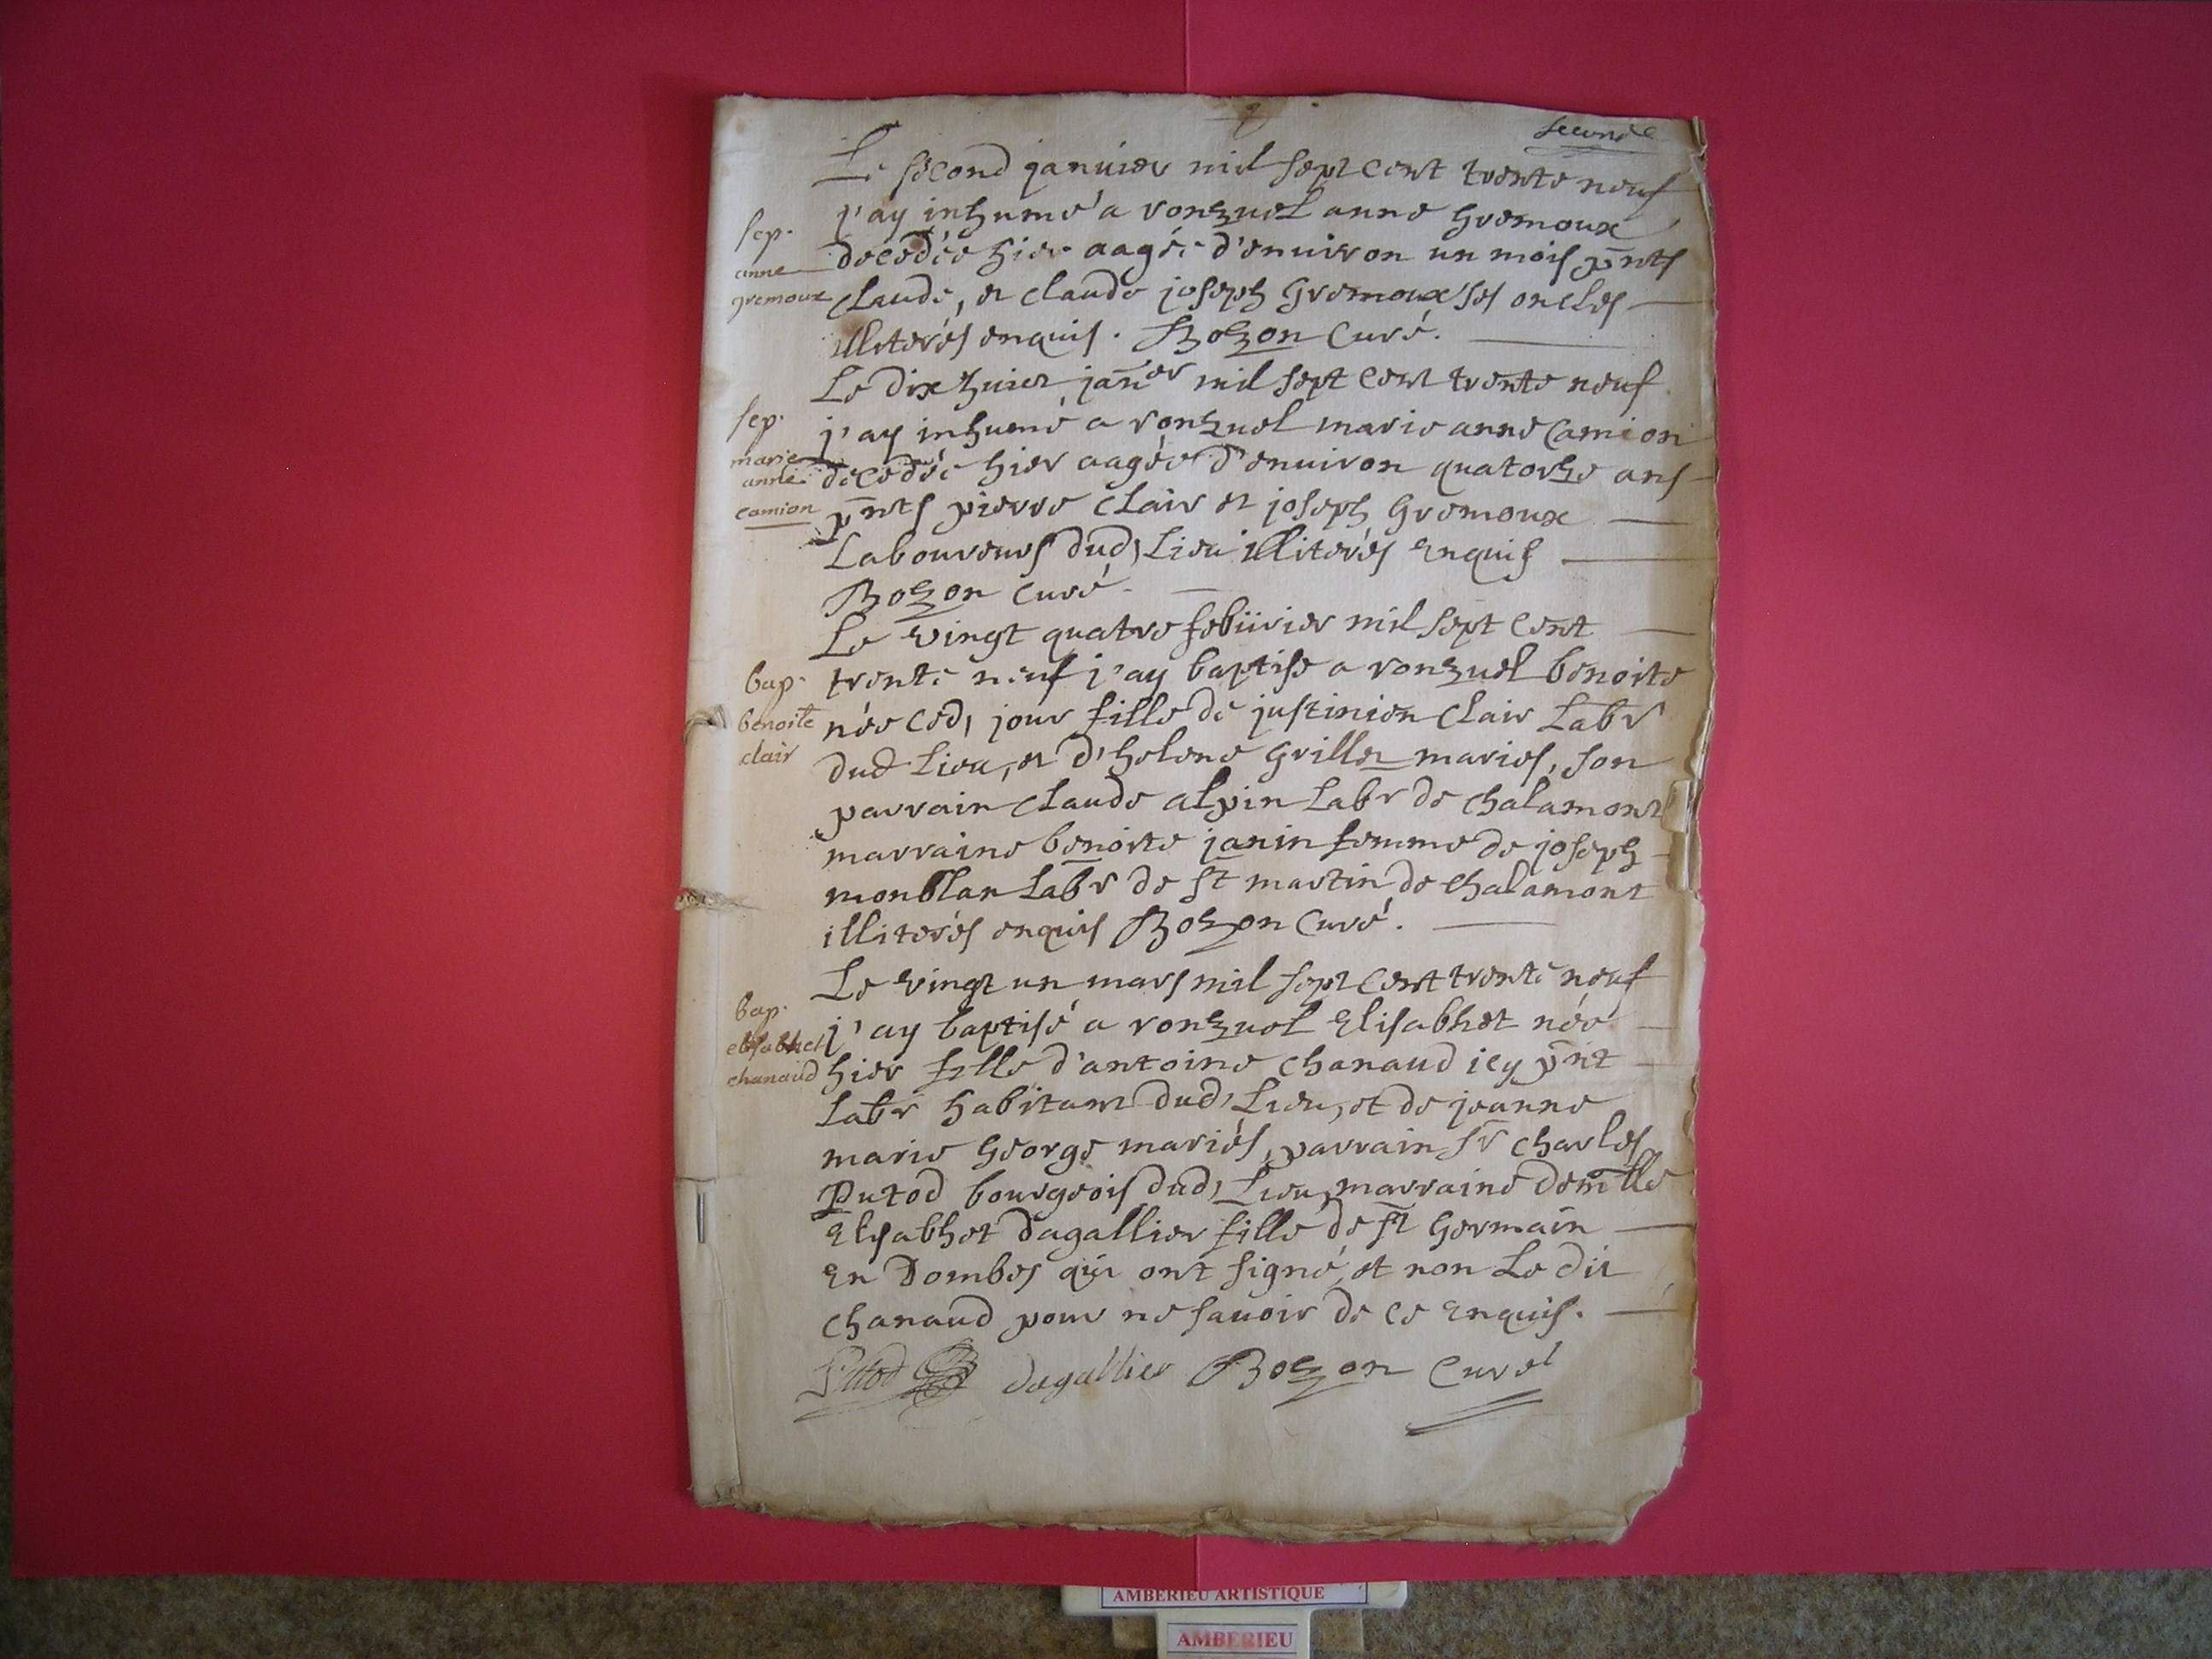 seconde
Le second januier mil sept cent trente neuf
sep. anne gremoux
j'ay inhumé a ronzuel anne Gremoux
decedée hier aagée d'enuiron un mois pnts
claude, et claude joseph Gremoux ses oncles
illiterés enquis. Bozon Curé.
Le dix huict janer mil sept cent trente neuf
sep. marie anne camion
j'ay inhumé a ronzuel marie anne Camion
decedée hier aagée d'enuiron quatorze ans
pnts pierre Clair et joseph Gremoux
Laboureurs dud, Lieu illiterés Enquis
Bozon Curé.
Le vingt quatre febürier mil sept Cent
bap. benoite clair
trente neuf j'ay baptise a ronzuel benoite
née Ced, jour fille de justinien Clair Labr
dud Lieu, et d'helene Grillet mariés, son
parrain Claude alpin Labr de Chalamont
marraine benoite janin femme de joseph
monblan Labr de st martin de Chalamont
illiterés enquis Bozon Curé.
Le vingt un mars mil sept Cent trente neuf
bap. elisabhet chanaud
j'ay baptisé a ronzuel Elisabhet née
hier fille d'antoine Chanaud icy pnt
Labr habitant dud, Lieu, et de jeanne
marie George mariés, parrain sr Charles
Putod bourgeois dud, Lieu, marraine demlle
Elisabhet dagallier fille de st Germain
En Dombes qui ont signé, et non Le dit
Chanaud pour ne sauoir de ce Enquis.
Putod dagallier Bozon Curé
AMBERIEU ARTISTIQUE
AMBERIEU